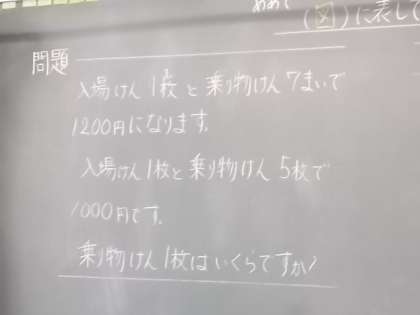 めあて
(図)に表して
問題
入場けん1枚と乗り物けん7まいで
1200円になります。
入場けん1枚と乗り物けん5枚で
1000円です。
乗り物けん1枚はいくらですか?